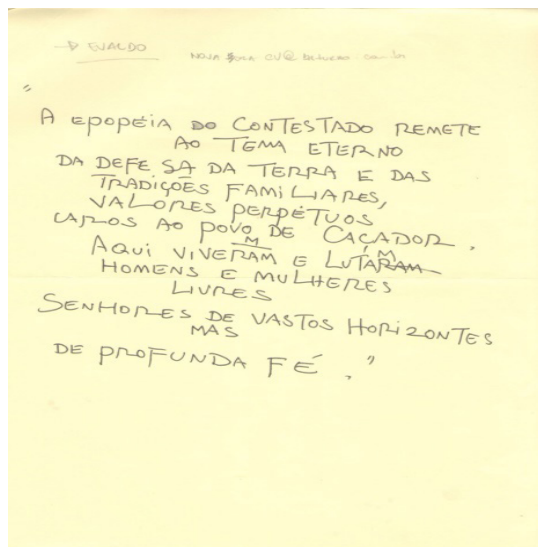 → EVALDO
NOVA
"
A EPOPÉIA DO CONTESTADO REMETE
AO TEMA ETERNO
DA DEFESA DA TERRA E DAS
TRADIÇÕES FAMILIARES,
VALORES PERPÉTUOS
CAROS AO POVO DE CAÇADOR.
AQUI VIVERAM E LUTARAM
HOMENS E MULHERES
LIVRES
SENHORES DE VASTOS HORIZONTES
MAS
DE PROFUNDA FÉ."